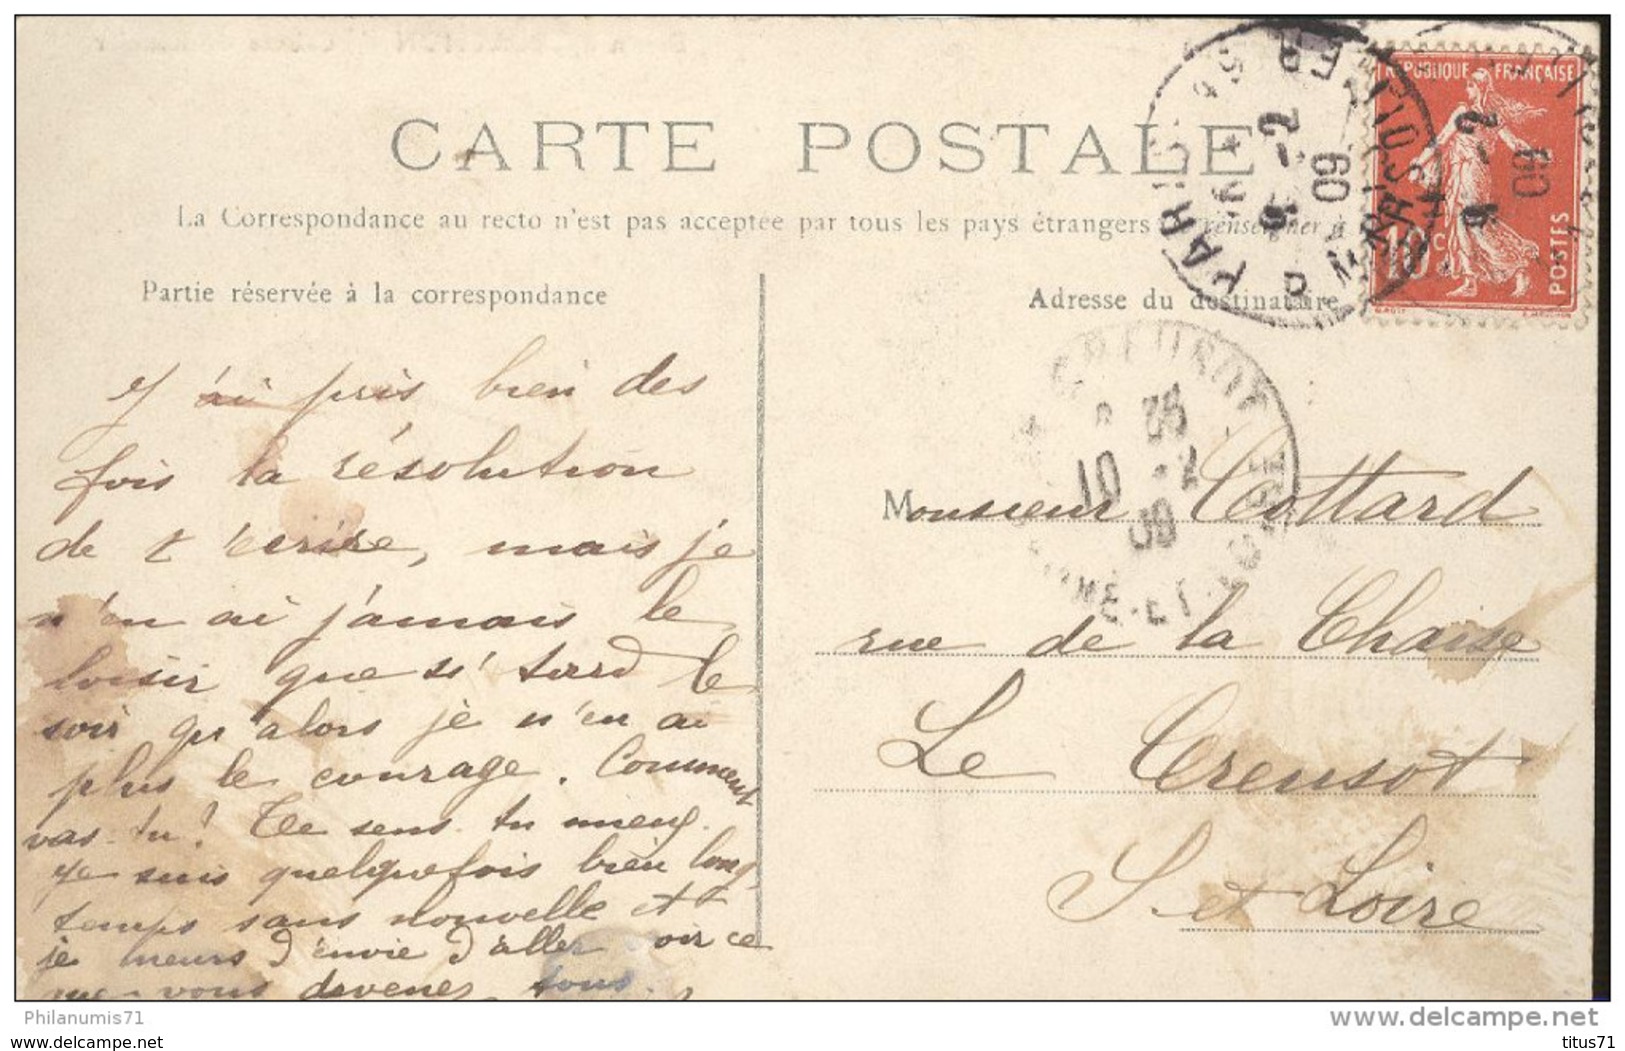 CARTE POSTALE
La Correspondance au recto n'est pas acceptée par tous les pays étrangers renseigner à
Partie réservée à la correspondance
Adresse du destinataire
RÉPUBLIQUE FRANÇAISE
10c
POSTES
PARIS
9 -2
09
10 -2
09
J'ai pris bien des
fois la résolution
de t'écrire, mais je
n'en ai j'amais le
loisir que si tard le
soir qu'alors je n'en ai
plus le courage. Comment
vas-tu! Te sens-tu mieux.
Je suis quelquefois bien long-
temps sans nouvelle et
je meurs d'envie d'aller voir ce
que vous devenez tous.
Monsieur Cottard
rue de la Chaise
Le Creusot
S. et Loire
Philanumis71
www.delcampe.net
www.delcampe.net
titus71